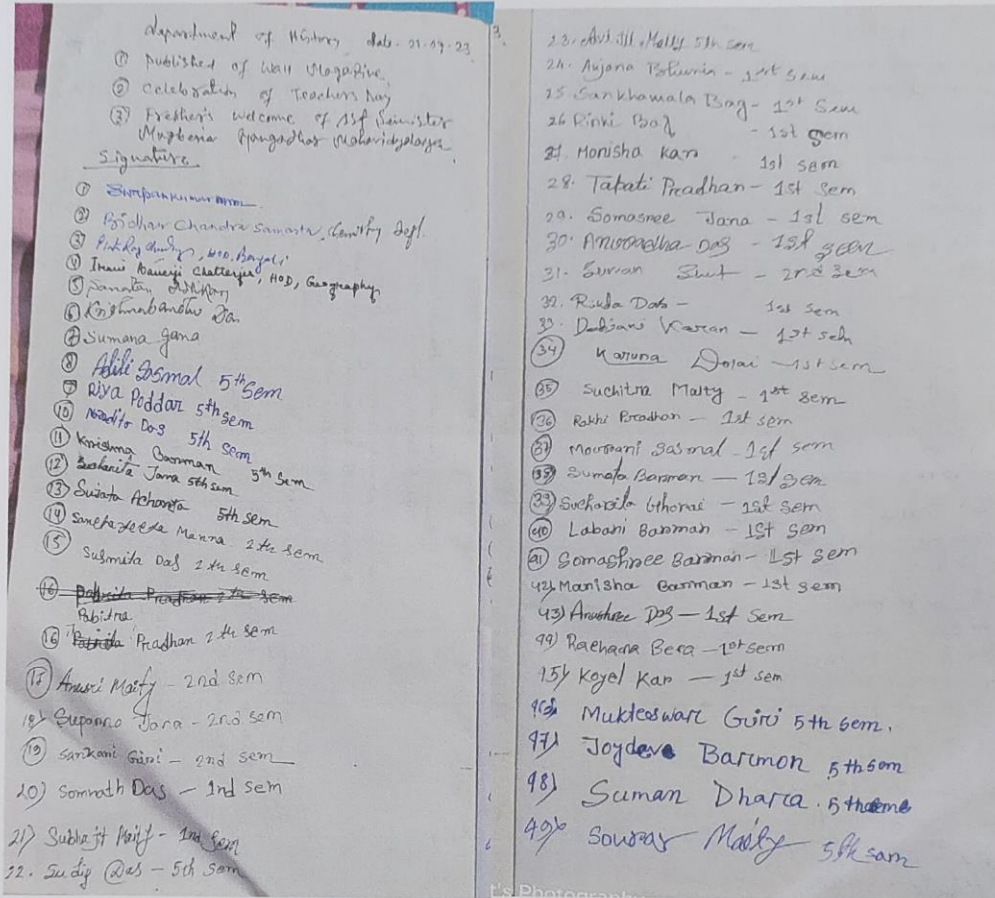 Department of History date - 21.09.23
① Published of Wall Magazine
② Celebration of Teachers Day
③ Freshers Welcome of 1st Semister
Mugberia Gangadhar Mahavidyalaya
Signature
①
② Bidhan Chandra Samanta, Chemistry Dept.
③ HOD, Bengali
④ Banerji Chatterjee, HOD, Geography
⑤ Sanatan
⑥ Krishnabandhu Das
⑦ Sumana Jana
⑧ Aditi Sasmal 5th Sem
⑨ Riya Poddar 5th sem
⑩ Das 5th sem
⑪ Krishna Barman 5th Sem
⑫ Jana 5th sem
⑬ Sujata Acharya 5th sem
⑭ Manna 2th sem
⑮ Susmita Das 2th sem
⑯ Pradhan 2th sem
Pabitra
⑯ Pradhan 2th sem
⑰ Maity - 2nd sem
18) Jana - 2nd sem
⑲ Giri - 2nd sem
20) Somnath Das - 1nd sem
21) Subhajit Maity - 1nd sem
22. Sudip Das - 5th sem
23. Maity 5th sem
24. Anjana - 1st sem
25 Sankhamala Bag - 1st Sem
26 Rinki Bag - 1st sem
27. Monisha Kar 1st sem
28. Tapati Pradhan - 1st Sem
29. Somasree Jana - 1st sem
30. Anuradha Das - 1st sem
31. - 2nd sem
32. Das - 1st sem
33. Karan - 1st sem
㉞ Karuna Dolai - 1st sem
㉟ Suchitra Maity - 1st sem
㊱ Rakhi Pradhan - 1st sem
㊲ Sasmal - 1st sem
㊳ Barman - 1st sem
㊴ Sucharita Ghorai - 1st sem
㊵ Labani Barman - 1st sem
㊶ Somashree Barman - 1st sem
42) Manisha Barman - 1st sem
43) Anushree Das - 1st Sem
44) Rachana Bera - 1st sem
45) Koyel Kar - 1st sem
46) Mukteswari Giri 5th sem.
47) Joydev Barmon 5th sem
48) Suman Dhara. 5th
49) Sourav Maity 5th sam
t's Photography